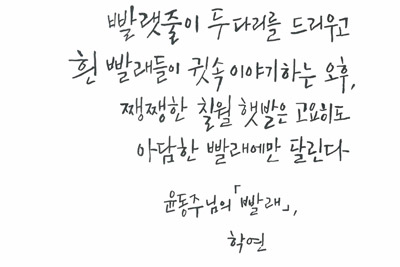 빨랫줄이 두 다리를 드리우고
흰 빨래들이 귓속 이야기하는 오후,
쨍쨍한 칠월 햇발은 고요히도
아담한 빨래에만 달린다
윤동주님의「빨래」,
학연